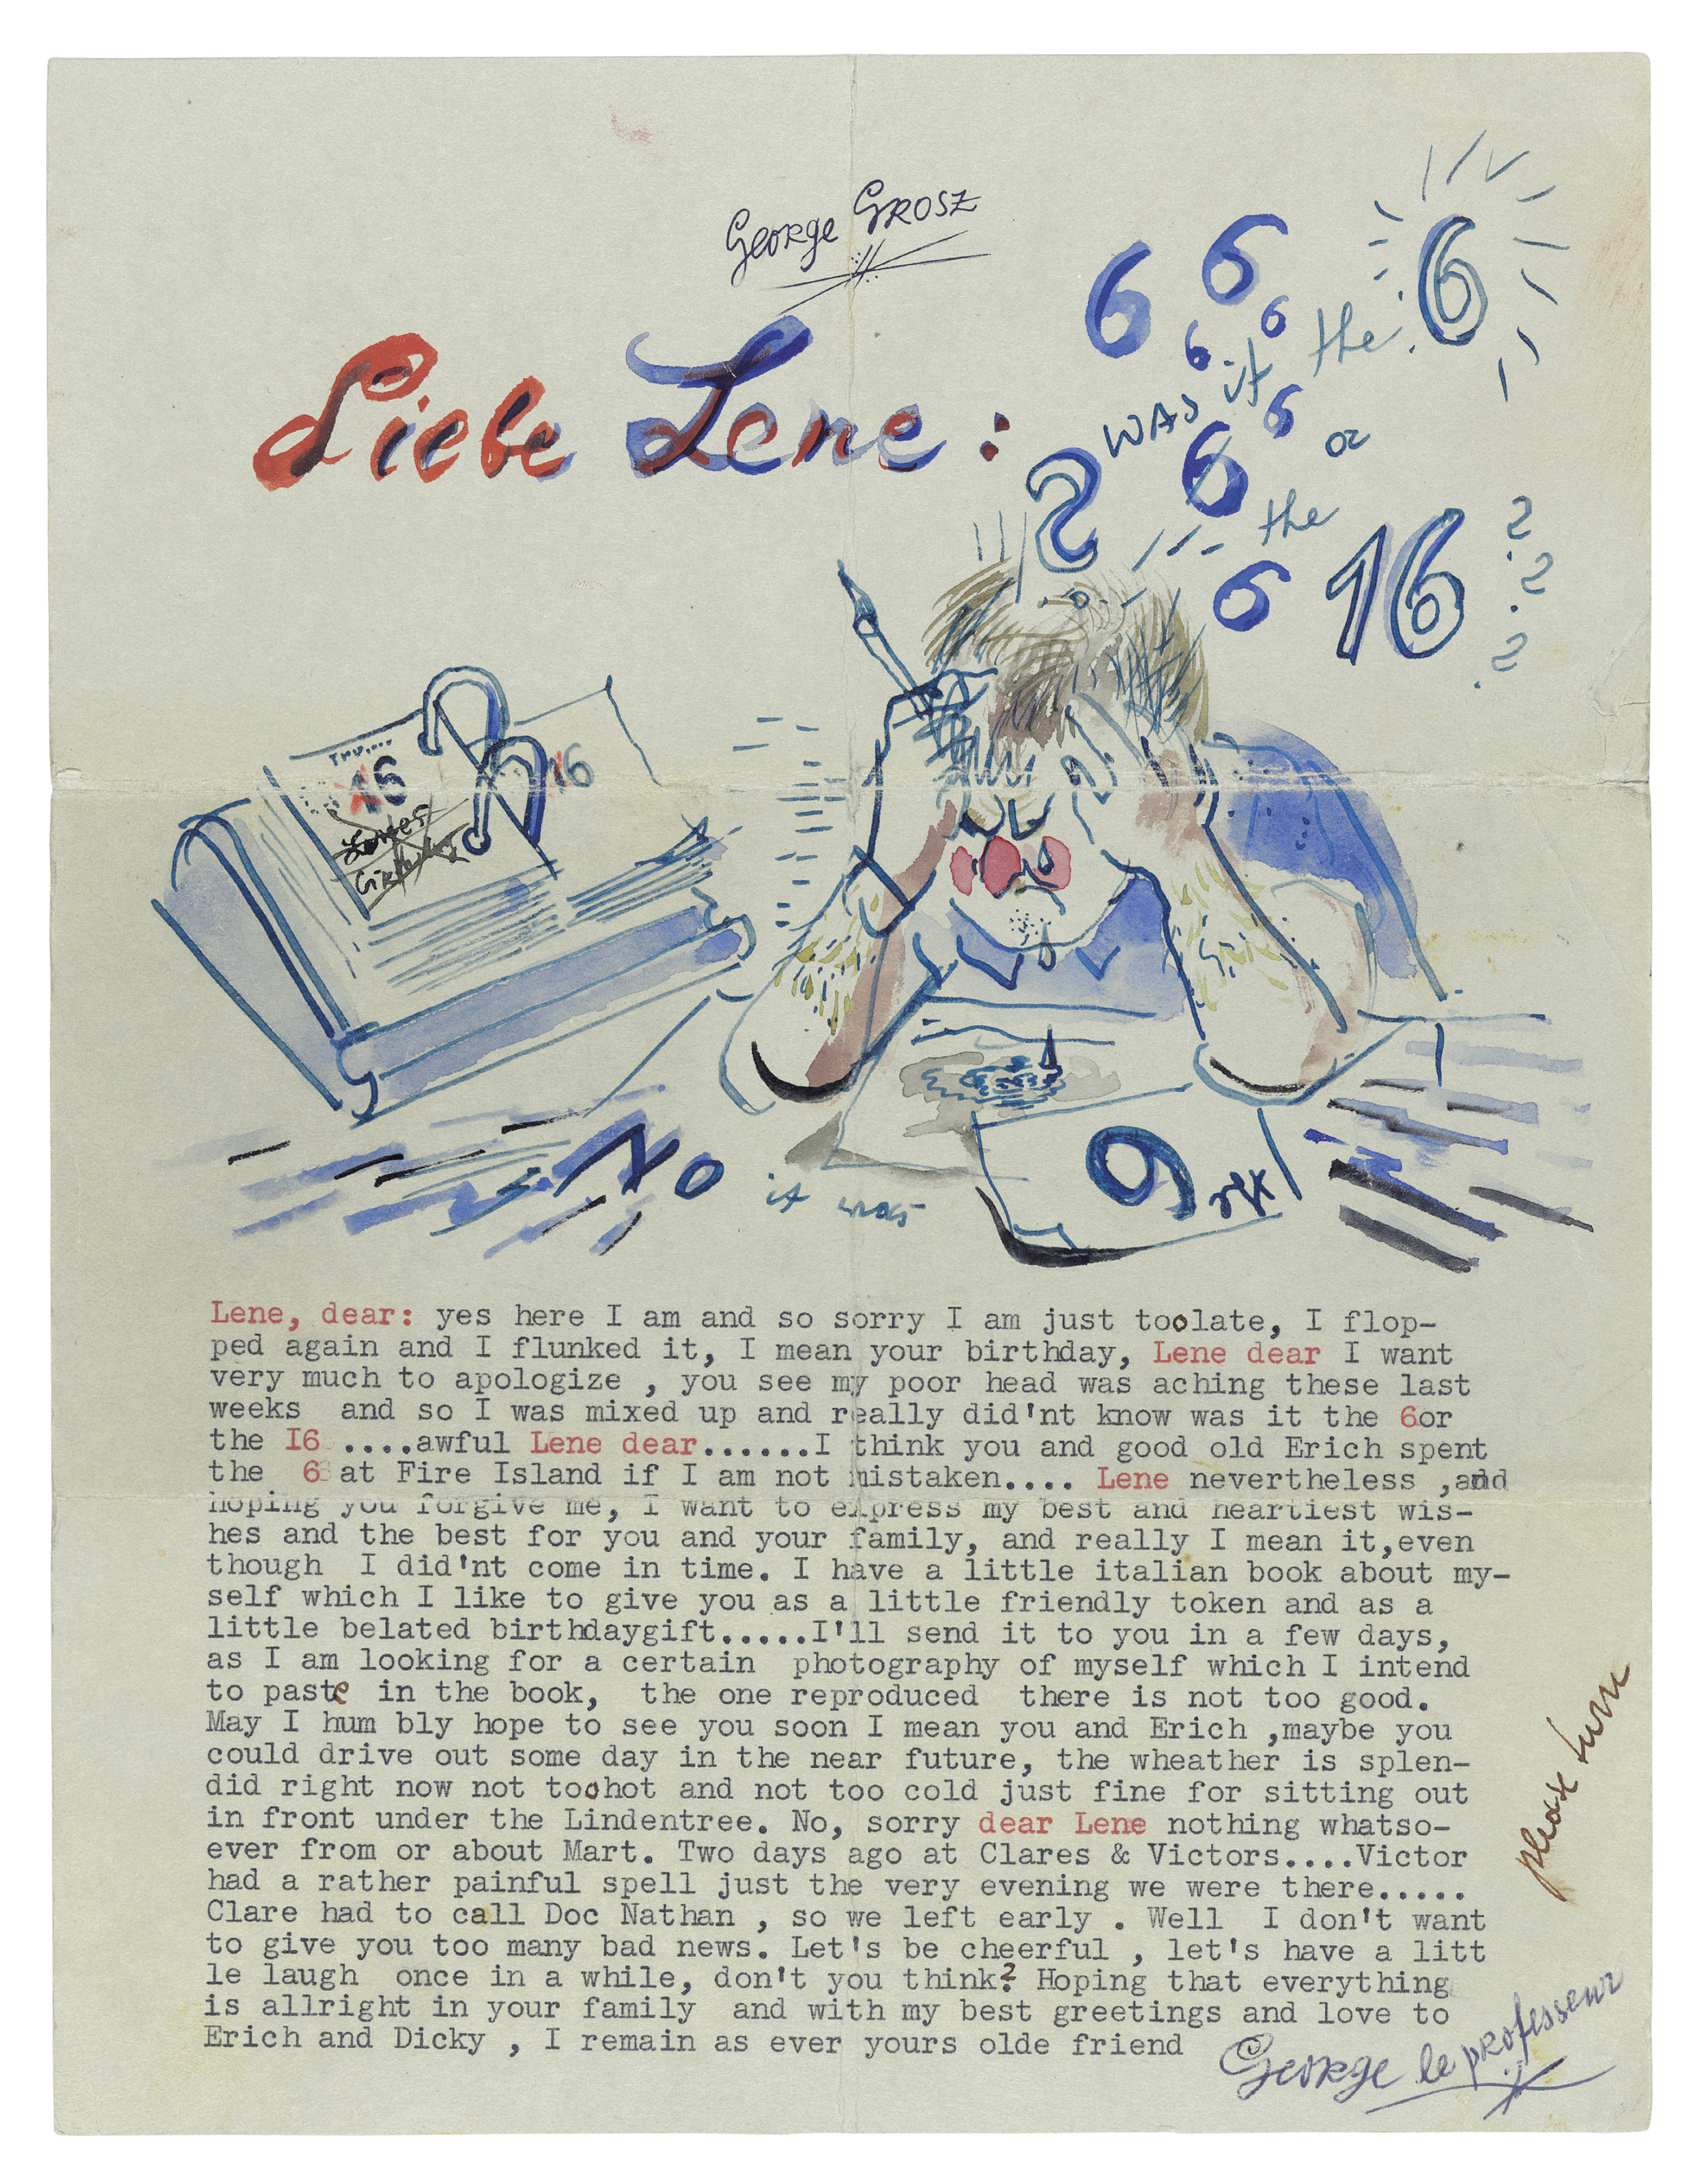 George GROSZ
Liebe Lene:
6 6 6
6 6
was it the 6
6 6 or
the
6 16
? ? ?
?
16
16
No it was
9
Lene, dear: yes here I am and so sorry I am just toolate, I flop-
ped again and I flunked it, I mean your birthday, Lene dear I want
very much to apologize , you see my poor head was aching these last
weeks and so I was mixed up and really did'nt know was it the 6or
the I6 ....awful Lene dear......I think you and good old Erich spent
the 6 at Fire Island if I am not mistaken.... Lene nevertheless ,and
hoping you forgive me, I want to express my best and heartiest wis-
hes and the best for you and your family, and really I mean it,even
though I did'nt come in time. I have a little italian book about my-
self which I like to give you as a little friendly token and as a
little belated birthdaygift.....I'll send it to you in a few days,
as I am looking for a certain photography of myself which I intend
to paste in the book, the one reproduced there is not too good.
May I hum bly hope to see you soon I mean you and Erich ,maybe you
could drive out some day in the near future, the wheather is splen-
did right now not toohot and not too cold just fine for sitting out
in front under the Lindentree. No, sorry dear Lene nothing whatso-
ever from or about Mart. Two days ago at Clares & Victors....Victor
had a rather painful spell just the very evening we were there.....
Clare had to call Doc Nathan , so we left early . Well I don't want
to give you too many bad news. Let's be cheerful , let's have a litt
le laugh once in a while, don't you think? Hoping that everything
is allright in your family and with my best greetings and love to
Erich and Dicky , I remain as ever yours olde friend
George le professeur
please turn